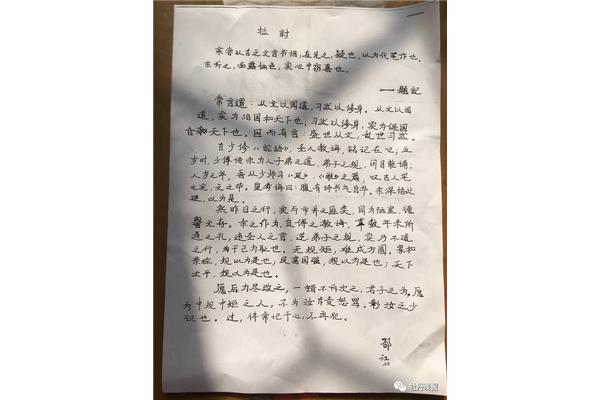 检讨
余尝以古之文言书烟，在见之，疑也，以为代笔作也。
余听之，面露恼色，实心中窃喜也。
——题记
常言道：从文以围道，习武以修身。从文以围
道，实为治国和天下也，习武以修身，实为保国
合和天下也。因而有言：盛世从文，乱世习武。
自少修《论语》，圣人教诲，铭记在心；五
岁时，少傅传余为人子弟之道，弟子之规，问目能诵；
八岁之年，每从少师习《风》、《雅》之篇，叹古人笔
之实，文之华。皇考诲曰：腹有诗书气自华。余深悟此
谜，以为是。
然昨日之行，实与市井之匹类，同为陋室，德
馨无存。余之作为，负傅之教诲，辜数年来所
遵之孔，违圣人之言，逆弟子之规，实乃不道
之行，为于己为耻也。无规矩，难成方圆。家和
亲睦，规以为是也；民富国强，规以为是也；天下
太平，规以为是也。
愿后力尽改之，一错不讳次之，君子之为。愿
为中规中矩之人，不为汝肯责怒骂。彰汝之少
识也。过，将常记于心，不再犯。
邹江
牡丹晚报